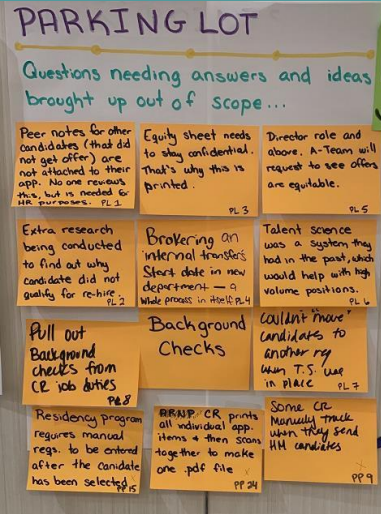 PARKING LOT
Questions needing answers and ideas
brought up out of scope...
Peer notes for other
candidates (that did
not get offer) are
not attached to their
app. No one reviews
this, but is needed for
HR purposes. PL 1
Equity sheet needs
to stay confidential.
That's why this is
printed.
PL 3
Director role and
above. A-Team will
request to see offers
are equitable.
PL 5
Extra research
being conducted
to find out why
candidate did not
qualify for re-hire.
PL 2
Brokering an
internal transfers
Start date in new
department — a
whole process in itself PL 4
Talent science
was a system they
had in the past, which
would help with high
volume positions.
PL 6
Pull out
Background
checks from
CR job duties
PP 8
Background
Checks
Couldn't "move"
candidates to
another req
when T.S. use
in place
PL 7
Residency program
requires manual
reqs. to be entered
after the canidate
has been selected
PP 15
ARNP. CR prints
all individual app.
items + then scans
together to make
one .pdf file
PP 24
Some CR
Manually track
when they send
HM candiates
PP 9